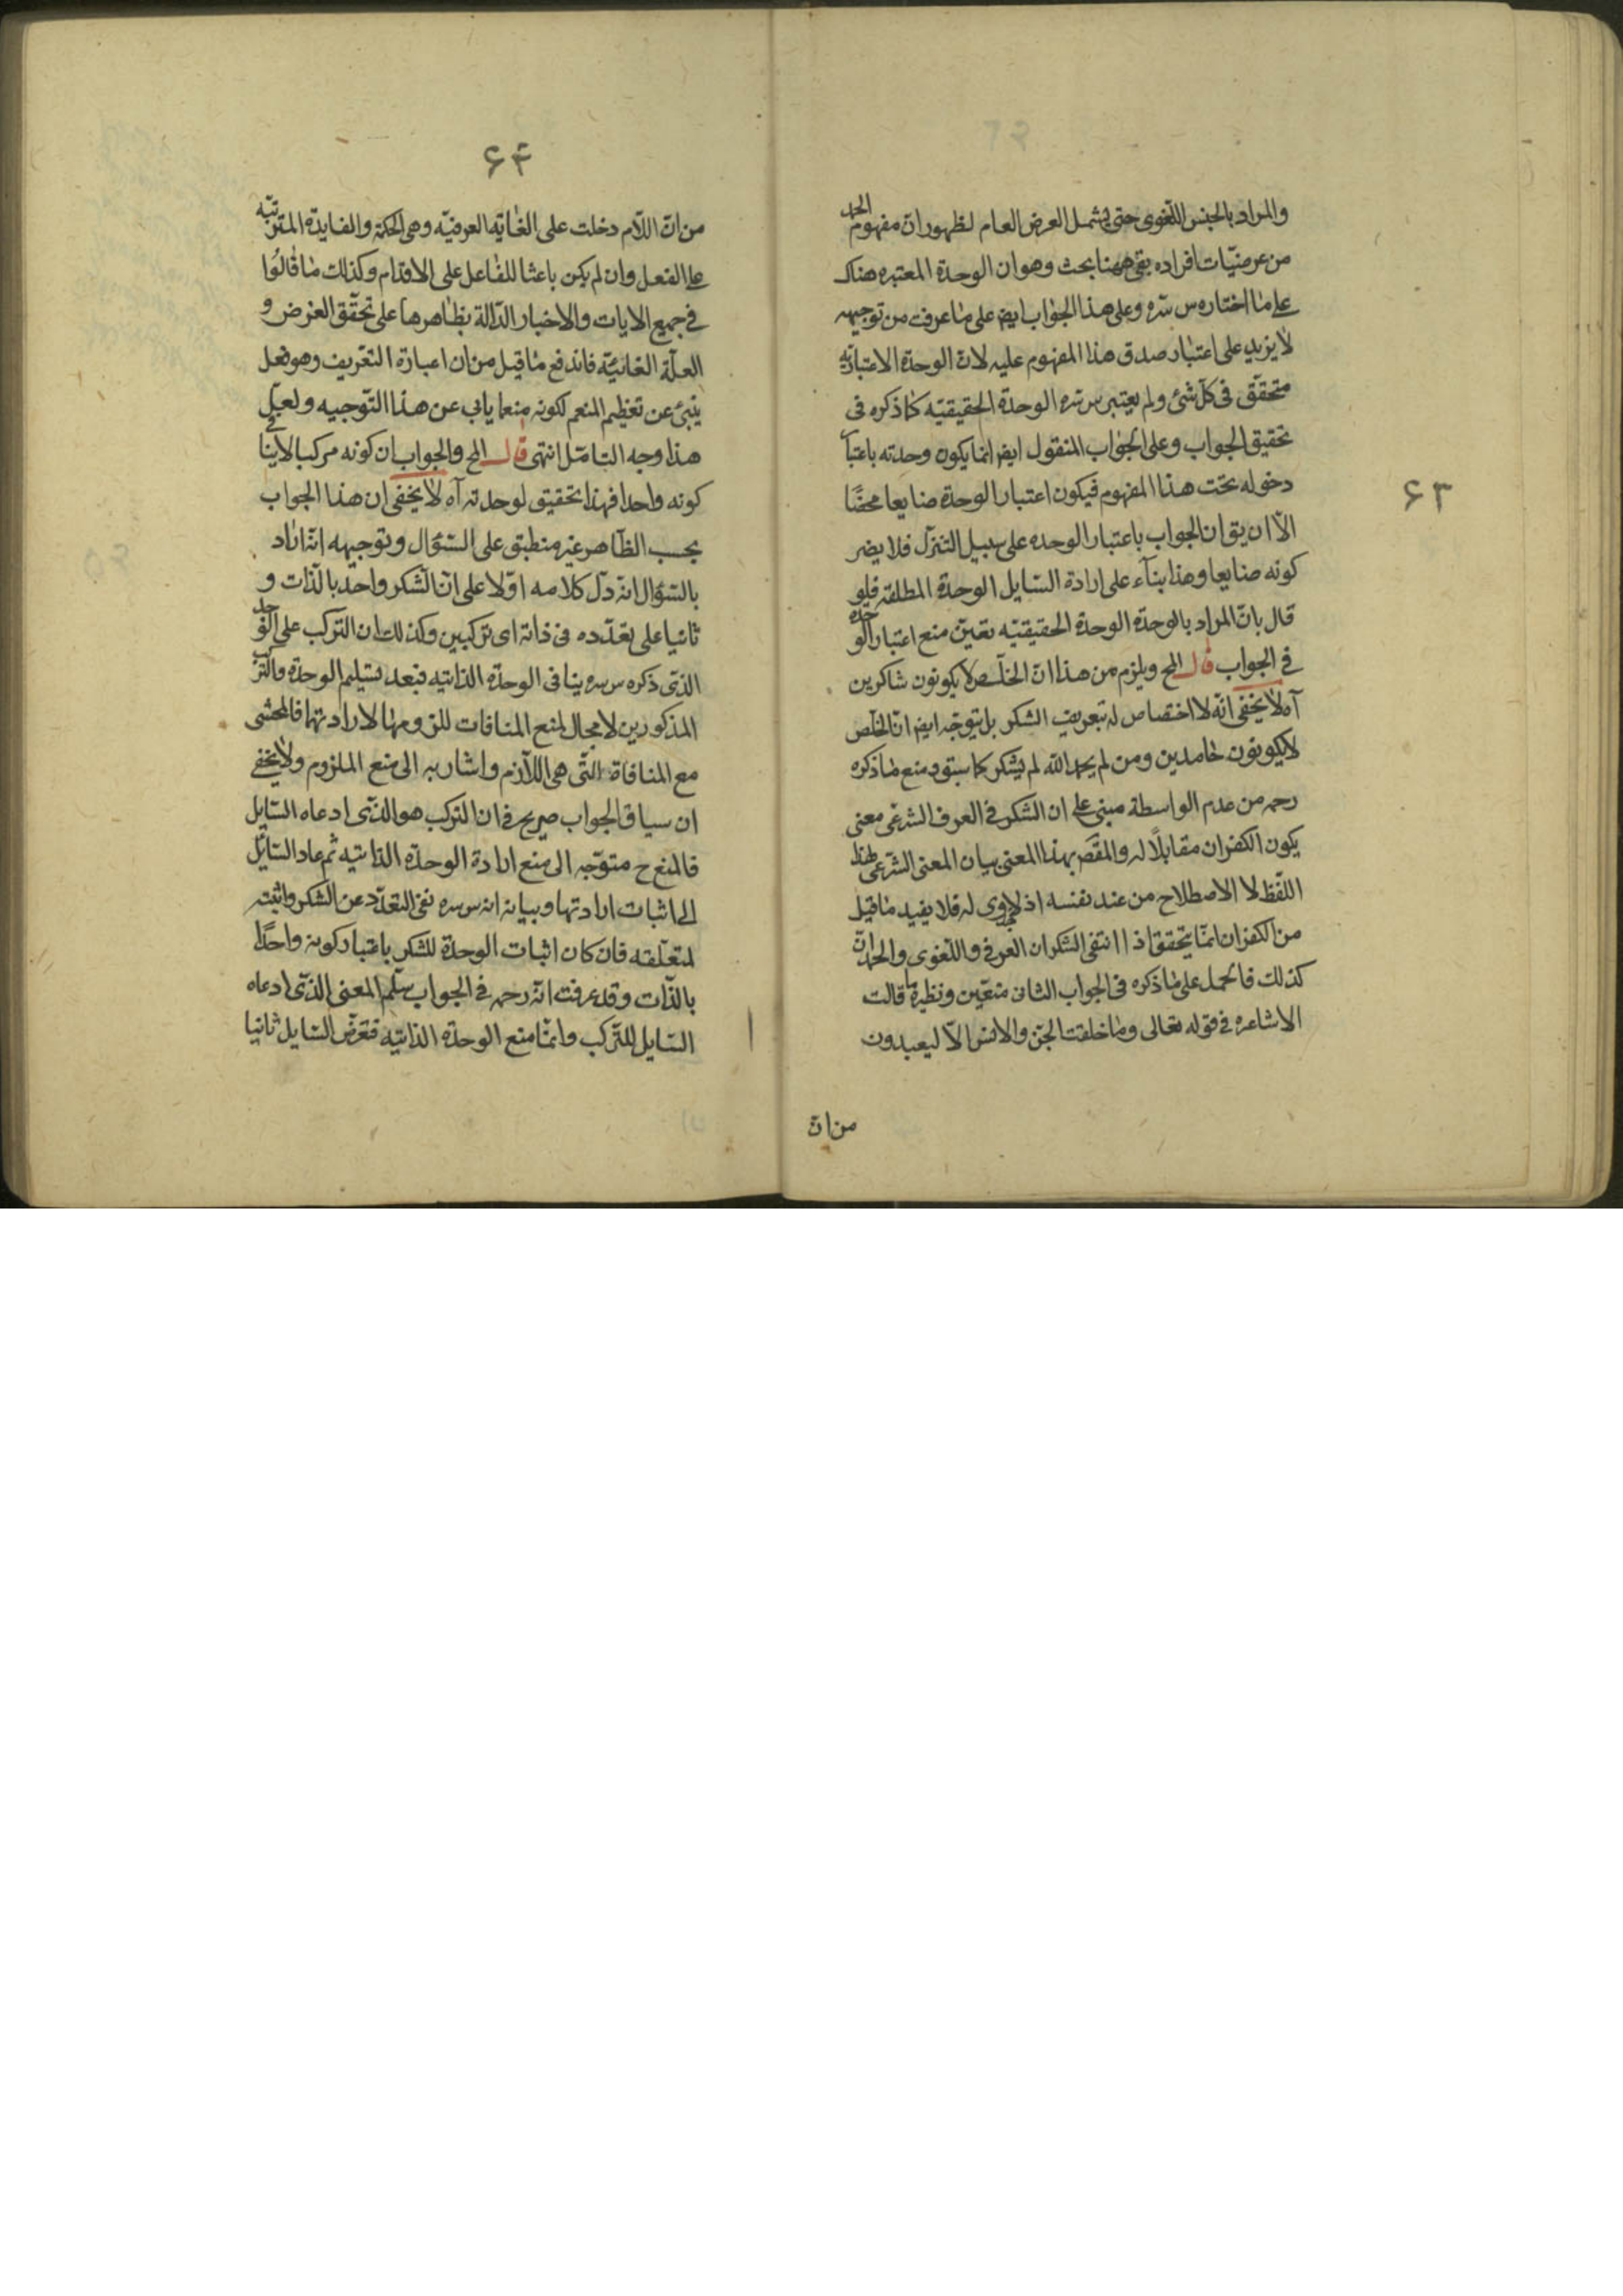 ۶۳
والمراد بالجنس اللغوی حتی یشمل العرض العام لظهور ان مفهوم الحمد
من عرضیّات افراده بقی ههنا بحث وهو ان الوحدة المعتبره هناک
علی ما اختاره س سّره وعلی هذا الجواب ایض علی ما عرفت من توجیهه
لا یزید علی اعتبار صدق هذا المفهوم علیه لان الوحدة الاعتباریّه
متحقّق فی کلّ شئ ولم یعتبر س سّره الوحدة الحقیقیّه کما ذکره فی
تحقیق الجواب وعلی الجواب المنقول ایض انما یکون وحدته باعتبا
دخوله تحت هذا المفهوم فیکون اعتبار الوحدة ضایعا محضًا
الاّ ان یق ان الجواب باعتبار الوحده علی سبیل التنزّل فلا یضر
کونه ضایعا وهذا بنآء علی ارادة السّایل الوحدة المطلقه فلو
قال بانّ المراد بالوحدة الوحدة الحقیقیّه تعیّن منع اعتبار الوحده
فی الجواب قال المح ویلزم من هذا انّ الخلّص لا یکونون شاکرین
آه لا یخفی انّه لا اختصاص له بتعریف الشکر بل یتوجّه ایض انّ الخلّص
لا یکونون حامدین ومن لم یحمد الله لم یشکر کما سبق ومنع ما ذکره
رحمه من عدم الواسطة مبنی علی ان الشکر فی العرف الشرعی معنی
یکون الکفران مقابلًا له والمقصّر بهذا المعنی بیان المعنی الشّرعی لهذا
اللّفظ لا الاصطلاح من عند نفسه اذ لا له فلا یفید ما قیل
من الکفران انمّا یتحقق اذا انتفی الشکران العرفی واللّغوی والحمد انّ
کذلک فالحمل علی ما ذکره فی الجواب الثانی متعیّن ونظیره ما قالت
الاشاعره فی قوله تعالی وما خلقت الجنّ والانس الاّ لیعبدون
من انّ
۶۴
من انّ اللاّم دخلت علی الغایّه العرفیّه وهی الحکمة والفایدّة المترتبّه
علی الفعل وان لم یکن باعثا للفاعل علی الاقدام وکذلک ما قالُوا
فی جمیع الایات والاخبار الدّالة بظاهرها علی تحقّق الغرض و
العلّة الغائیّه فاندفع ما قیل من ان اعبارة التعّریف وهو فعل
ینبئ عن تعظیم المنعم لکونه منعما یابی عن هذا التوّجیه ولعلّ
هذا وجه التامّل انتهی قال المح والجواب ان کونه مرکبا لا ینافی
کونه واحدا فهذا تحقیق لوحدته آه لا یخفی ان هذا الجواب
بحسب الظاهر غیر منطبق علی السّؤال وتوجیهه انّه اراد
بالسّؤال انه دلّ کلامه اوّلا علی انّ الشّکر واحد بالذّات و
ثانیا علی تعدّده فی ذاته ای ترکبین وکذلک ان الترّکب علی الوجه
الذّی ذکره س سره ینافی الوحدّة الذاتیه فبعد تسلیم الوحدّة والترکب
المذکورین لا مجال لمنع المنافات للزومها لارادتهما فالمحشی
مع المنافاة التّی هی اللاّزم واشار به الی منع الملزوم ولا یخفی
ان سیاق الجواب صریح فی ان الترکب هو الذّی ادعاه السّایل
فالمنع ح متوّجه الی منع ارادة الوحدّة الذاتیه ثم عاد السّایل
الی اثبات ارادتها وبیانه انه س سره نفی التعدّد عن الشکر واثبته
لمتعلّقه فان کان اثبات الوحدة للشکر باعتبار کونه واحدًا
بالذّات وقد عرفت انّه رحمه فی الجواب سلّم المعنی الذّی ادعاه
السّایل للترّکب وانمّا منع الوحدّة الذاتیّه فتعرّض السّایل ثانیا